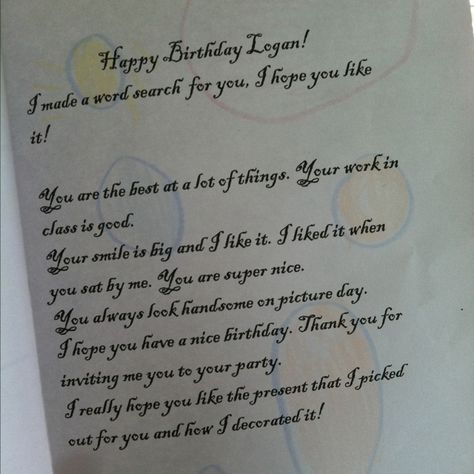 Happy Birthday Logan!
I made a word search for you, I hope you like
it!
You are the best at a lot of things. Your work in
class is good.
Your smile is big and I like it. I liked it when
you sat by me. You are super nice.
You always look handsome on picture day.
I hope you have a nice birthday. Thank you for
inviting me you to your party.
I really hope you like the present that I picked
out for you and how I decorated it!